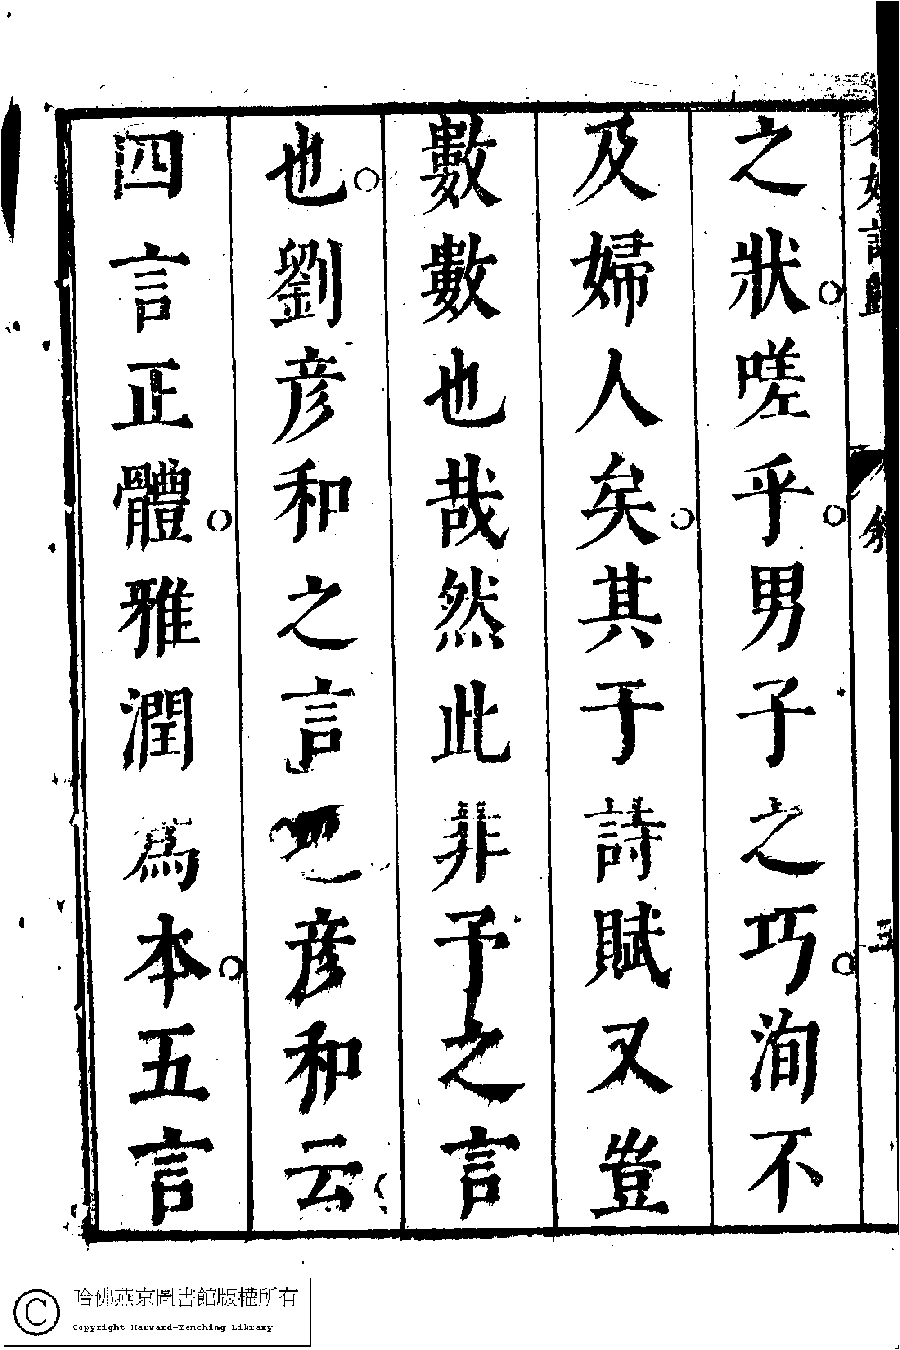 名媛詩歸
敘
三
之狀嗟乎男子之巧洵不
及婦人矣其于詩賦又豈
數數也哉然此非予之言
也劉彥和之言也彥和云
四言正體雅潤為本五言
哈佛燕京圖書館版權所有
Copyright Harvard-Yenching Library